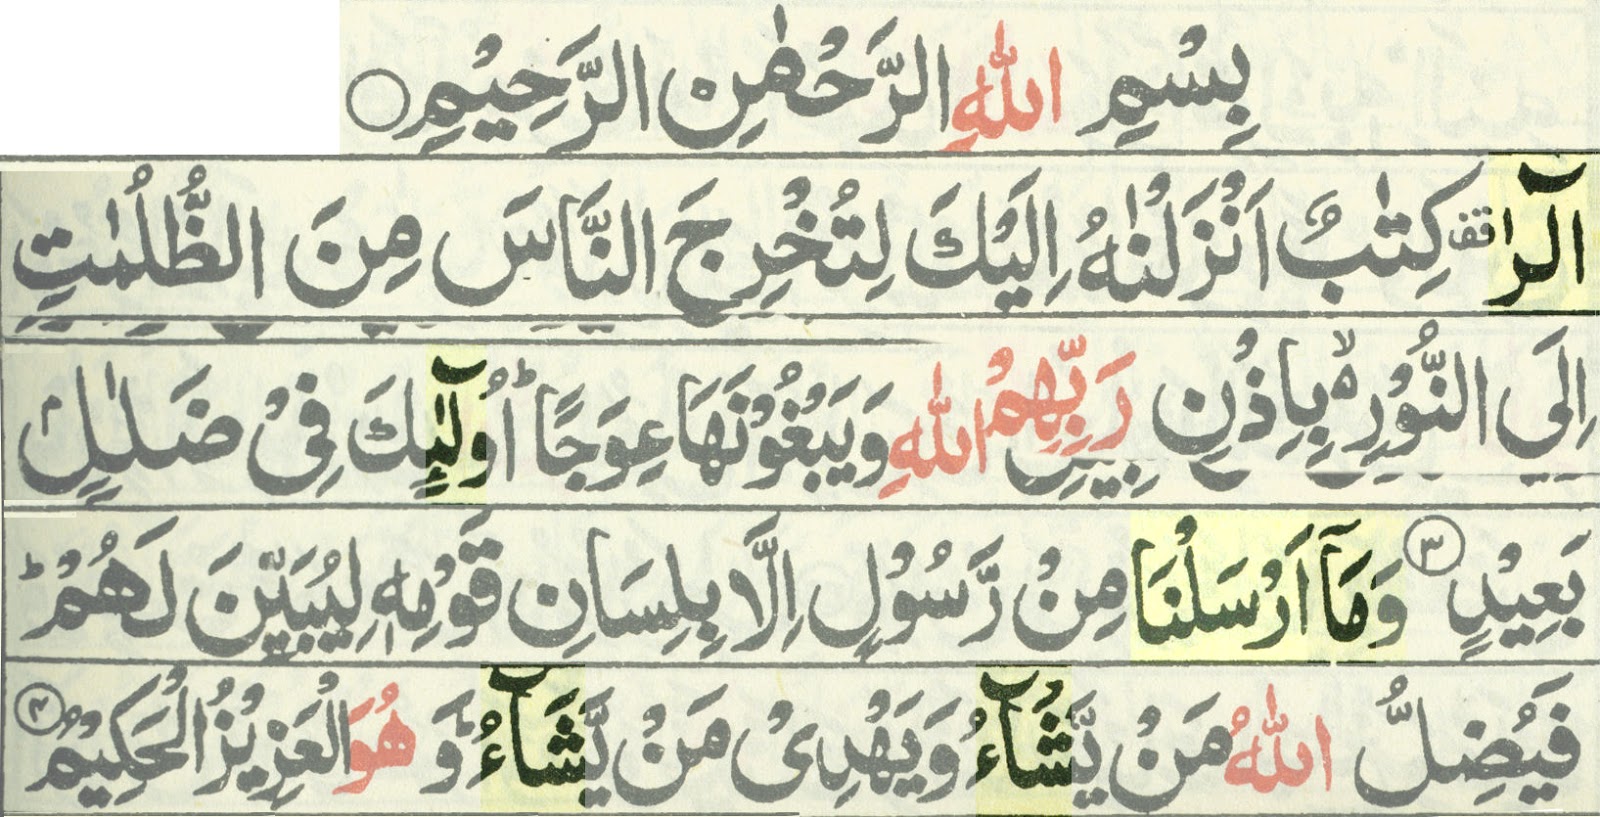 بِسْمِ اللّٰهِ الرَّحْمٰنِ الرَّحِيْمِ
الٓرٰ قف كِتٰبٌ اَنْزَلْنٰهُ اِلَيْكَ لِتُخْرِجَ النَّاسَ مِنَ الظُّلُمٰتِ
اِلَى النُّوْرِ ۙ۬ بِاِذْنِ رَبِّهِمْ اللّٰهِ وَيَبْغُوْنَهَا عِوَجًا ؕ اُولٰٓئِكَ فِىْ ضَلٰلٍۭ
بَعِيْدٍ ۳ وَمَاۤ اَرْسَلْنَا مِنْ رَّسُوْلٍ اِلَّا بِلِسَانِ قَوْمِهٖ لِيُبَيِّنَ لَهُمْ ؕ
فَيُضِلُّ اللّٰهُ مَنْ يَّشَآءُ وَيَهْدِىْ مَنْ يَّشَآءُ ؕ وَهُوَ الْعَزِيْزُ الْحَكِيْمُ ۴